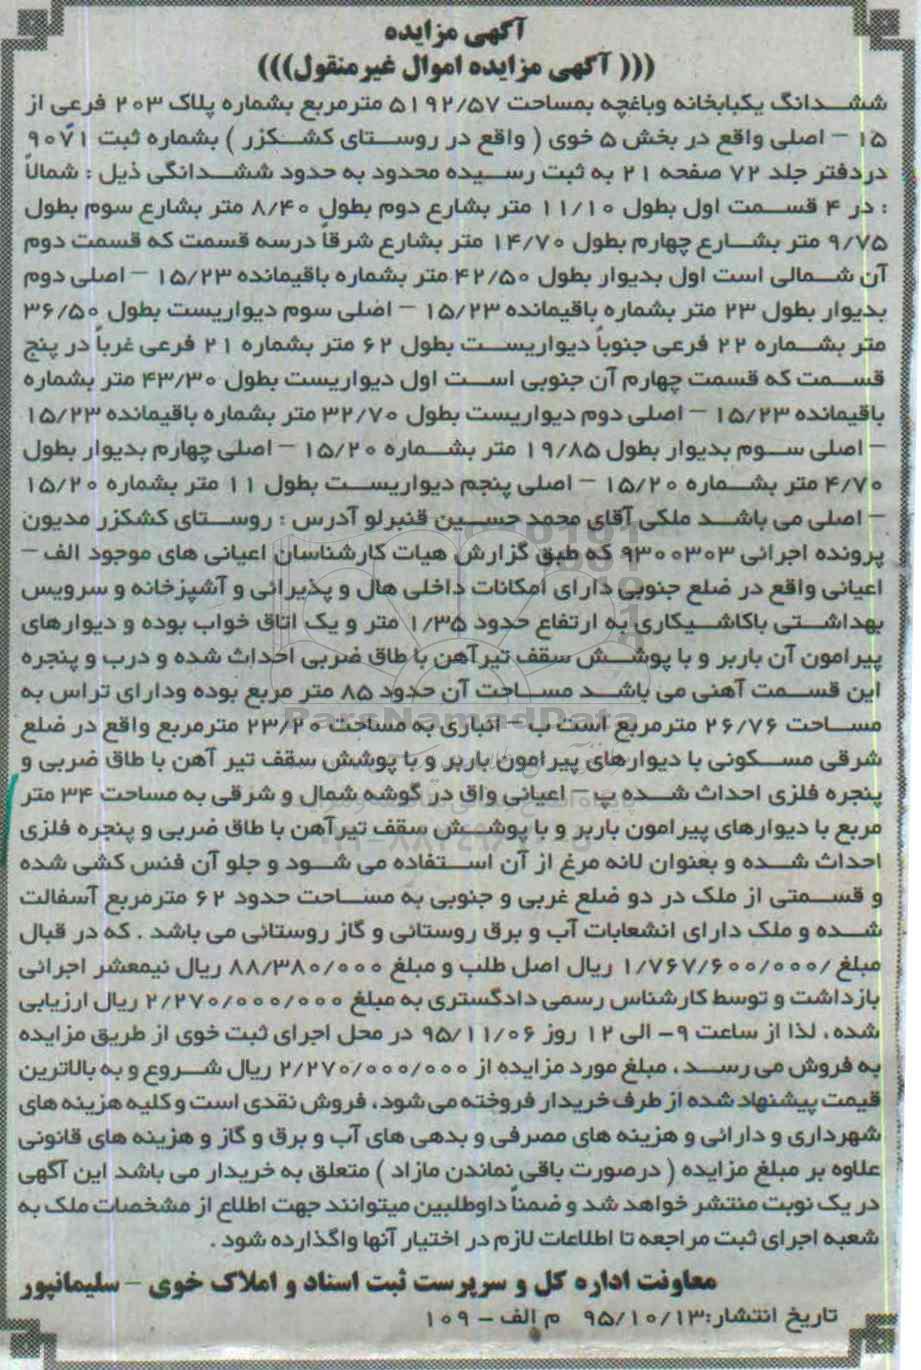 آگهی مزایده
((( آگهی مزایده اموال غیرمنقول)))
ششدانگ یکبابخانه وباغچه بمساحت ۵۱۹۲/۵۷ مترمربع بشماره پلاک ۲۰۳ فرعی از
۱۵ – اصلی واقع در بخش ۵ خوی ( واقع در روستای کشکزر ) بشماره ثبت ۹۰۷۱
دردفتر جلد ۷۲ صفحه ۲۱ به ثبت رسیده محدود به حدود ششدانگی ذیل : شمالاً
: در ۴ قسمت اول بطول ۱۱/۱۰ متر بشارع دوم بطول ۸/۴۰ متر بشارع سوم بطول
۹/۷۵ متر بشارع چهارم بطول ۱۴/۷۰ متر بشارع شرقاً درسه قسمت که قسمت دوم
آن شمالی است اول بدیوار بطول ۴۲/۵۰ متر بشماره باقیمانده ۱۵/۲۳ – اصلی دوم
بدیوار بطول ۲۳ متر بشماره باقیمانده ۱۵/۲۳ – اصلی سوم دیواریست بطول ۳۶/۵۰
متر بشماره ۲۲ فرعی جنوباً دیواریست بطول ۶۲ متر بشماره ۲۱ فرعی غرباً در پنج
قسمت که قسمت چهارم آن جنوبی است اول دیواریست بطول ۴۳/۳۰ متر بشماره
باقیمانده ۱۵/۲۳ – اصلی دوم دیواریست بطول ۳۲/۷۰ متر بشماره باقیمانده ۱۵/۲۳
– اصلی سوم بدیوار بطول ۱۹/۸۵ متر بشماره ۱۵/۲۰ – اصلی چهارم بدیوار بطول
۴/۷۰ متر بشماره ۱۵/۲۰ – اصلی پنجم دیواریست بطول ۱۱ متر بشماره ۱۵/۲۰
– اصلی می باشد ملکی آقای محمد حسین قنبرلو آدرس : روستای کشکزر مدیون
پرونده اجرائی ۹۳۰۰۳۰۳ که طبق گزارش هیات کارشناسان اعیانی های موجود الف –
اعیانی واقع در ضلع جنوبی دارای امکانات داخلی هال و پذیرائی و آشپزخانه و سرویس
بهداشتی باکاشیکاری به ارتفاع حدود ۱/۳۵ متر و یک اتاق خواب بوده و دیوارهای
پیرامون آن باربر و با پوشش سقف تیرآهن با طاق ضربی احداث شده و درب و پنجره
این قسمت آهنی می باشد مساحت آن حدود ۸۵ متر مربع بوده ودارای تراس به
مساحت ۲۶/۷۶ مترمربع است ب – انباری به مساحت ۲۳/۲۰ مترمربع واقع در ضلع
شرقی مسکونی با دیوارهای پیرامون باربر و با پوشش سقف تیر آهن با طاق ضربی و
پنجره فلزی احداث شده پ – اعیانی واق در گوشه شمال و شرقی به مساحت ۳۴ متر
مربع با دیوارهای پیرامون باربر و با پوشش سقف تیرآهن با طاق ضربی و پنجره فلزی
احداث شده و بعنوان لانه مرغ از آن استفاده می شود و جلو آن فنس کشی شده
و قسمتی از ملک در دو ضلع غربی و جنوبی به مساحت حدود ۶۲ مترمربع آسفالت
شده و ملک دارای انشعابات آب و برق روستائی و گاز روستائی می باشد . که در قبال
مبلغ /۱/۷۶۷/۶۰۰/۰۰۰ ریال اصل طلب و مبلغ ۸۸/۳۸۰/۰۰۰ ریال نیمعشر اجرائی
بازداشت و توسط کارشناس رسمی دادگستری به مبلغ ۲/۲۷۰/۰۰۰/۰۰۰ ریال ارزیابی
شده ، لذا از ساعت ۹- الی ۱۲ روز ۹۵/۱۱/۰۶ در محل اجرای ثبت خوی از طریق مزایده
به فروش می رسد ، مبلغ مورد مزایده از ۲/۲۷۰/۰۰۰/۰۰۰ ریال شروع و به بالاترین
قیمت پیشنهاد شده از طرف خریدار فروخته می شود، فروش نقدی است و کلیه هزینه های
شهرداری و دارائی و هزینه های مصرفی و بدهی های آب و برق و گاز و هزینه های قانونی
علاوه بر مبلغ مزایده ( درصورت باقی نماندن مازاد ) متعلق به خریدار می باشد این آگهی
در یک نوبت منتشر خواهد شد و ضمناً داوطلبین میتوانند جهت اطلاع از مشخصات ملک به
شعبه اجرای ثبت مراجعه تا اطلاعات لازم در اختیار آنها واگذارده شود .
معاونت اداره کل و سرپرست ثبت اسناد و املاک خوی – سلیمانپور
تاریخ انتشار:۹۵/۱۰/۱۳ م الف – ۱۰۹